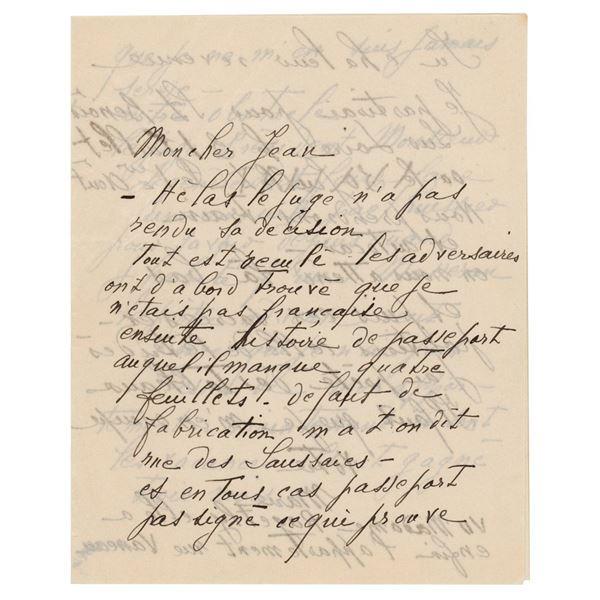 Mon cher Jean
– Hélas le juge n'a pas
rendu sa décision
Tout est reculé les adversaires
ont d'abord trouvé que je
n'étais pas française
ensuite histoire de passeport
auquel il manque quatre
feuillets. defaut de
fabrication m'a t on dit
rue des Saussaies –
et en tous cas passeport
pas signé ce qui prouve